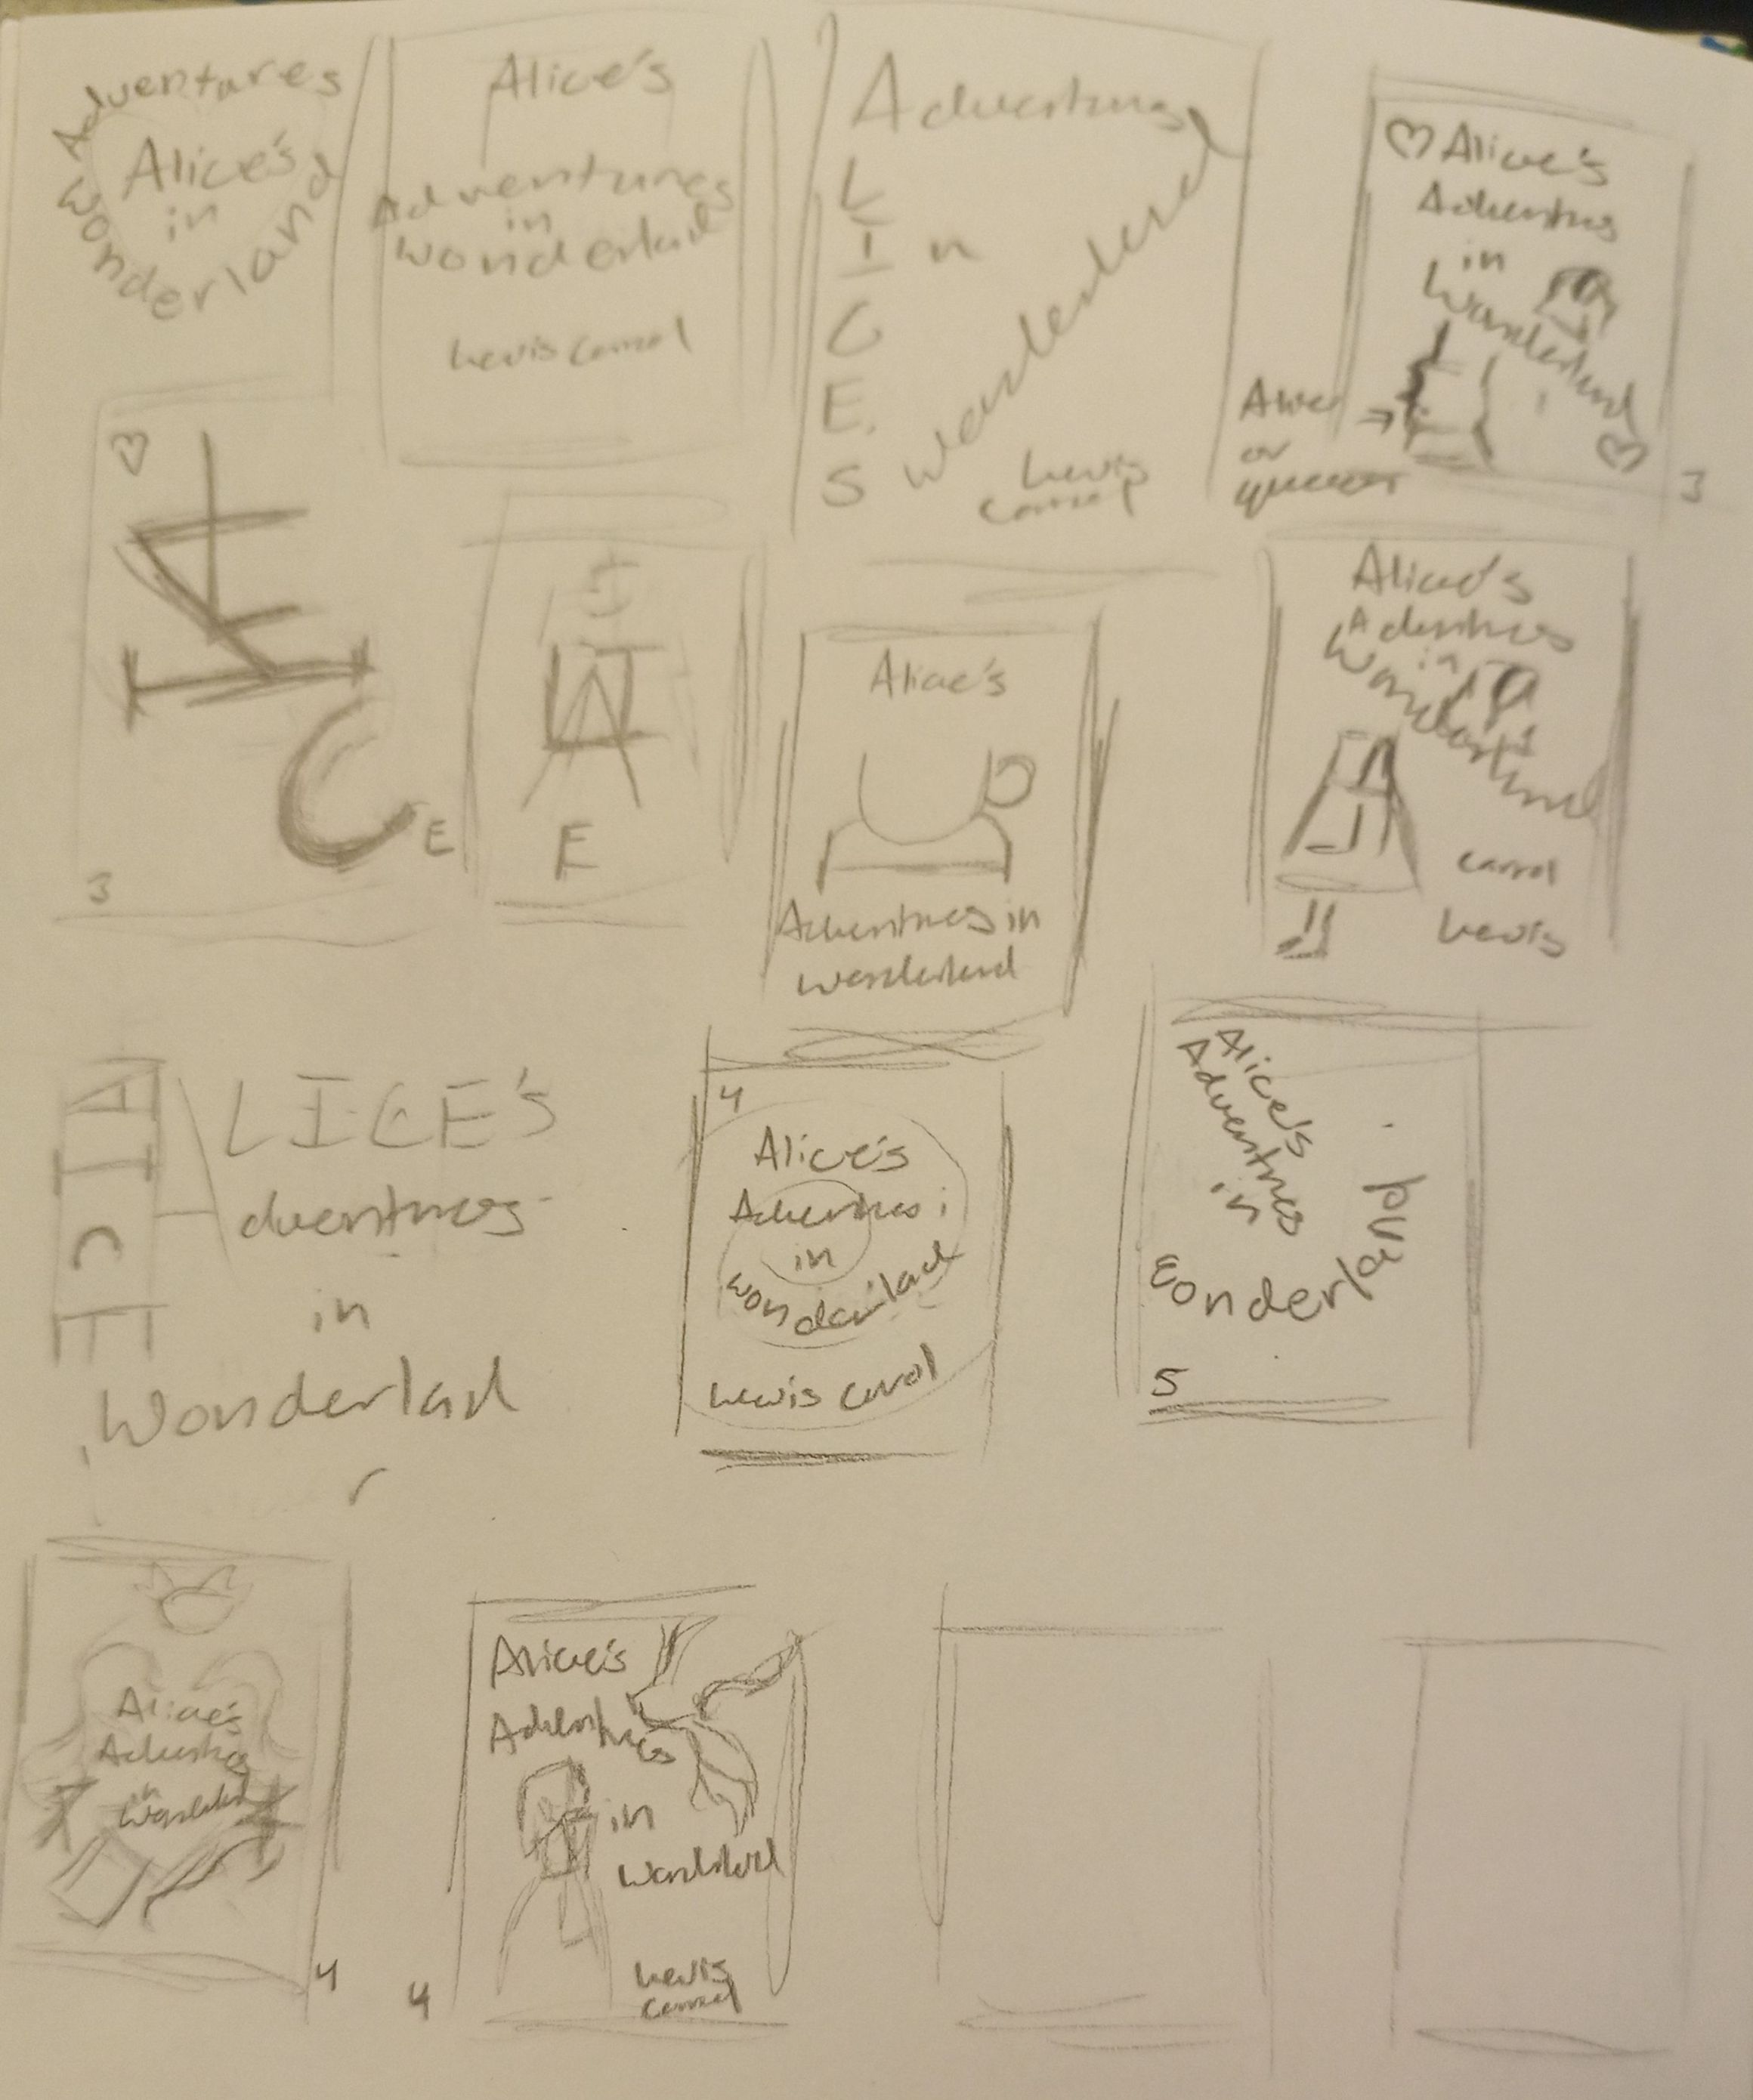 Adventures
Alice's
in
Wonderland
Alice's
Adventures
in
Wonderlad
Lewis Carrol
Adventures
L
I n
C
E.
S
Wonderland
Lewis
Carrol
Alice's
Adventres
in
Wonderland
3
Alice
or
queen
A
L
I
C
E
3
I
A
E
Alice's
Adventres in
Wonderland
Alice's
Adventres
in
Wonderland
Carrol
Lewis
A
I
C
E
LICE's
dventures
in
Wonderlad
4
Alice's
Adventres
in
Wonderland
Lewis Carrol
Alice's
Adventres
in
Wonderland
5
Alice's
Adventres
in
Wonderland
4
Alice's
Adventres
in
Wonderland
Lewis
Carrol
4